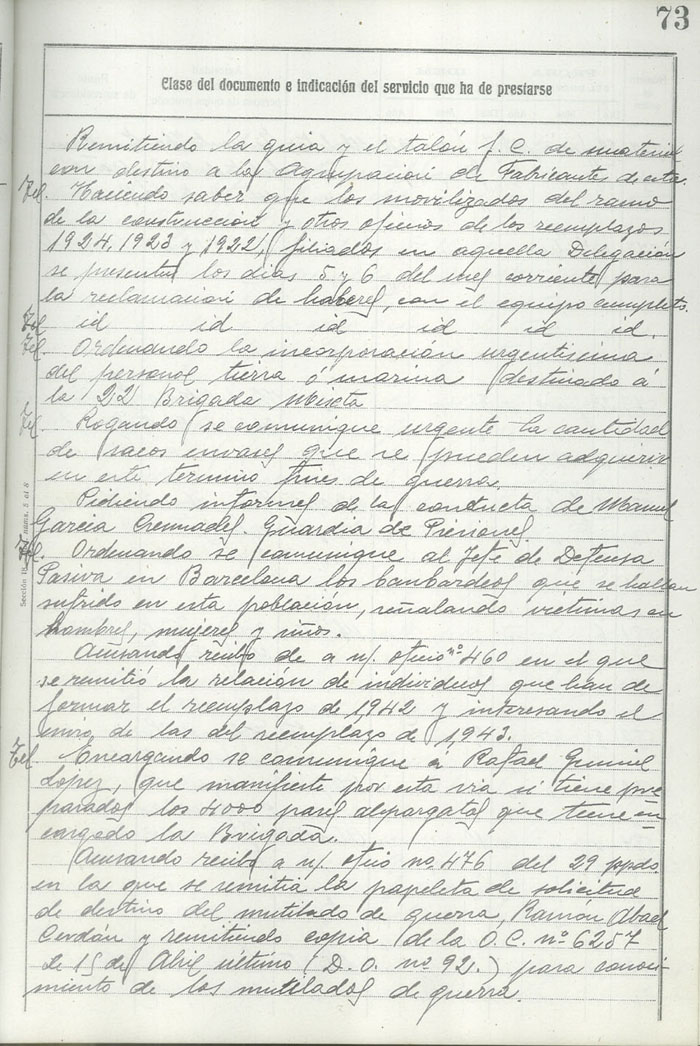 73
Clase del documento e indicación del servicio que ha de prestarse
Remitiendo la guia y el talón f. C. de material
con destino a la Agrupación de Fabricantes de esta.
Tel. Haciendo saber que los movilizados del ramo
de la construcción y otros oficios de los reemplazos
1924, 1923 y 1922, filiados en aquella Delegación
se presenten los dias 5 y 6 del mes corriente para
la reclamación de haberes, con el equipo completo.
Tel id id id id id id.
Tel. Ordenando la incorporación urgentisima
del personal tierra ó marina destinado á
la 22 Brigada Mixta
Tel. Rogando se comunique urgente la cantidad
de sacos envases que se pueden adquirir
en este termino fines de guerra.
Pidiendo informes de la conducta de Manuel
Garcia Cremades. Guardia de Prisiones.
Tel. Ordenando se comunique al Jefe de Defensa
Pasiva en Barcelona los bombardeos que se hallan
sufrido en esta población, señalando victimas en
hombres, mujeres y niños.
Acusando recibo de a n/. oficio nº 460 en el que
se remitió la relación de individuos que han de
formar el reemplazo de 1942 y interesando el
envio de las del reemplazo de 1,943.
Tel Encargando se comunique a Rafael
Lopez, que manifieste por esta via si tiene pre
parados los 4000 pares alpargatas que tiene en
cargado la Brigada.
Acusando recibo a n/. oficio no. 476 del 29 ppdo.
en la que se remitia la papeleta de solicitud
de destino del mutilado de guerra, Ramón Abad
Cerdán y remitiendo copia de la O. C. nº 6257
de 15 de Abril ultimo (D. O. nº 92.) para conoci-
miento de los mutilados de guerra.